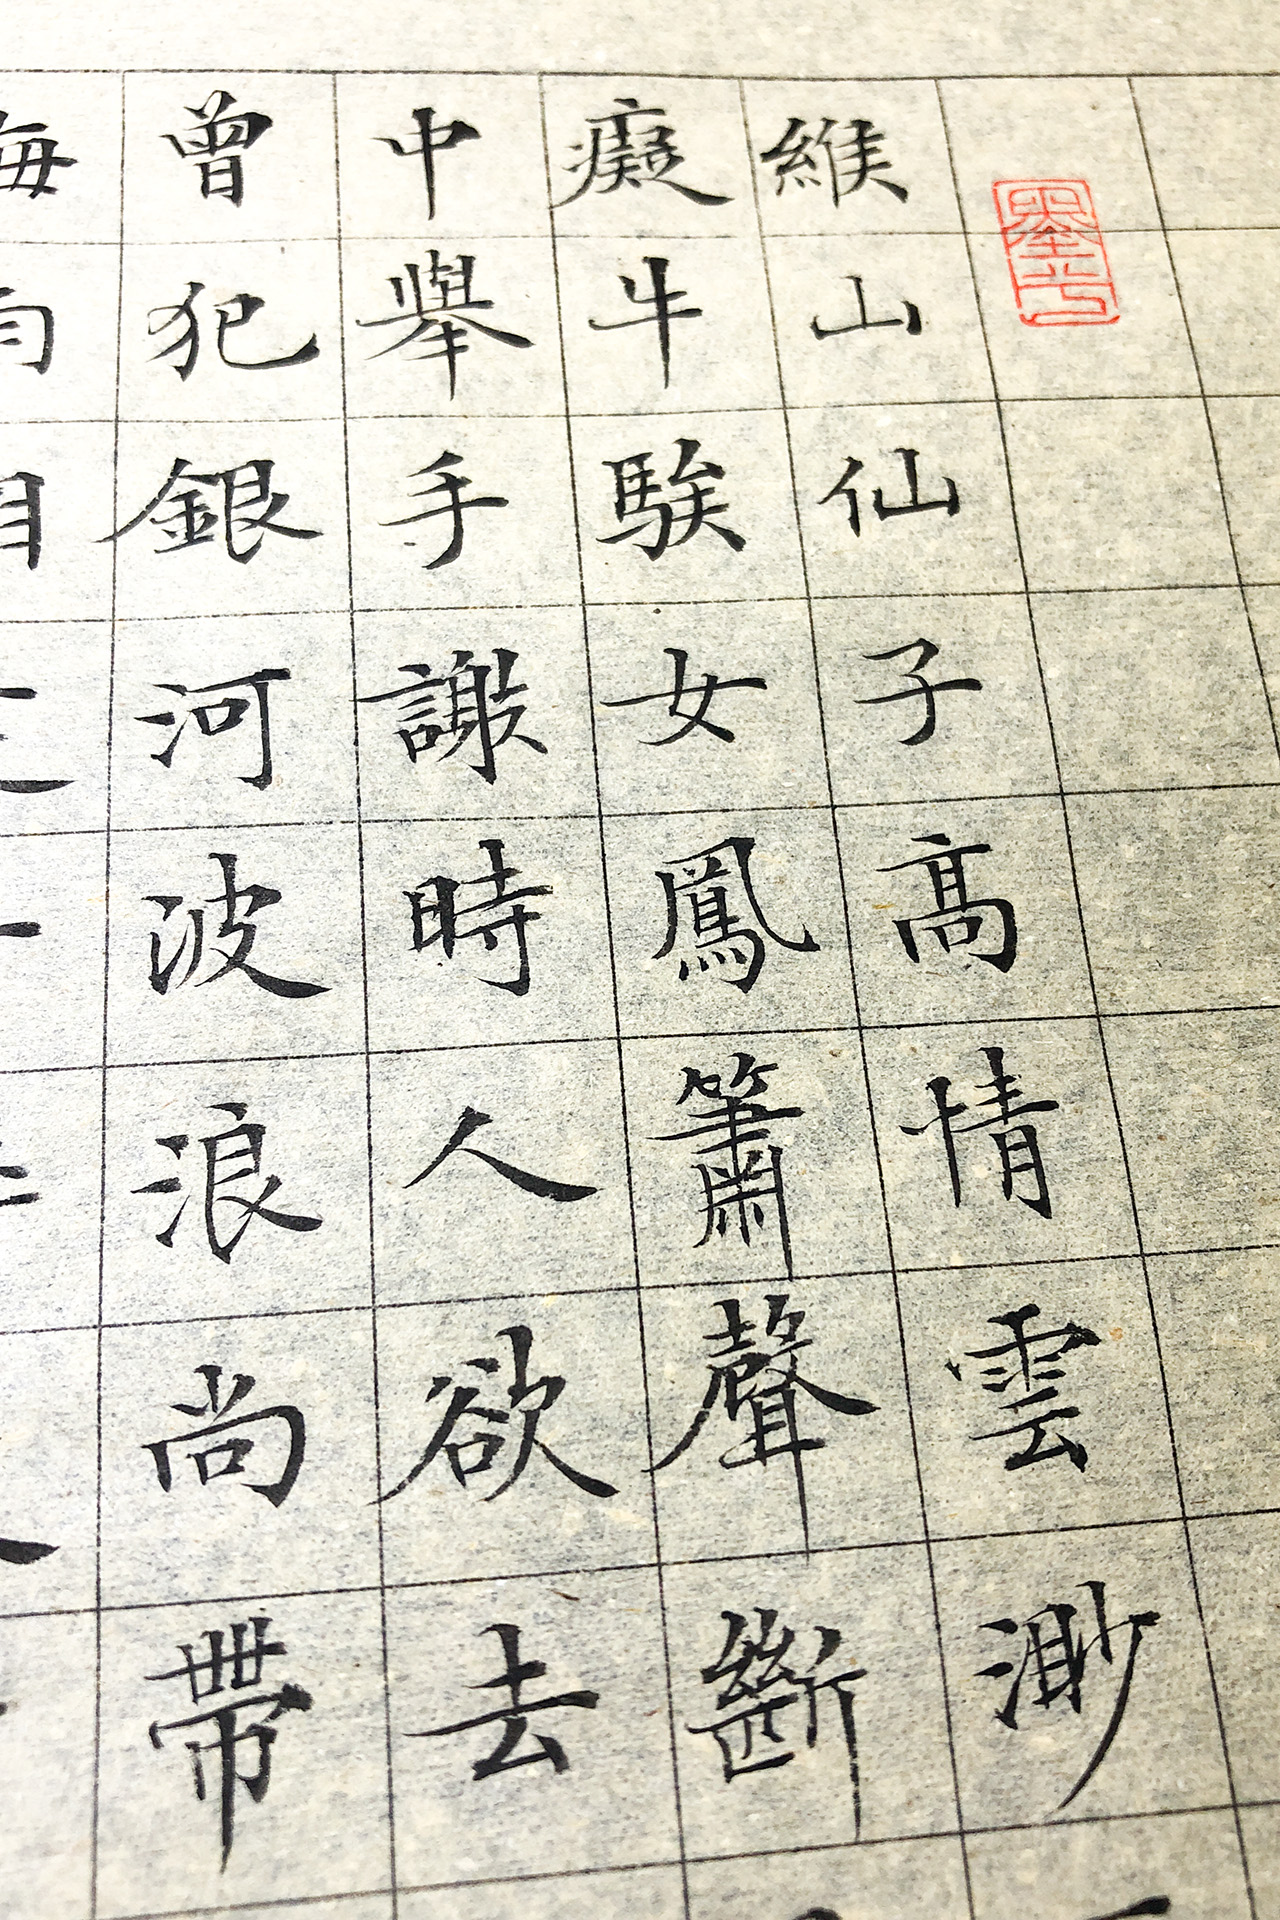 緱山仙子高情雲渺
癡牛騃女鳳簫聲斷
中舉手謝時人欲去
曾犯銀河波浪尚帶